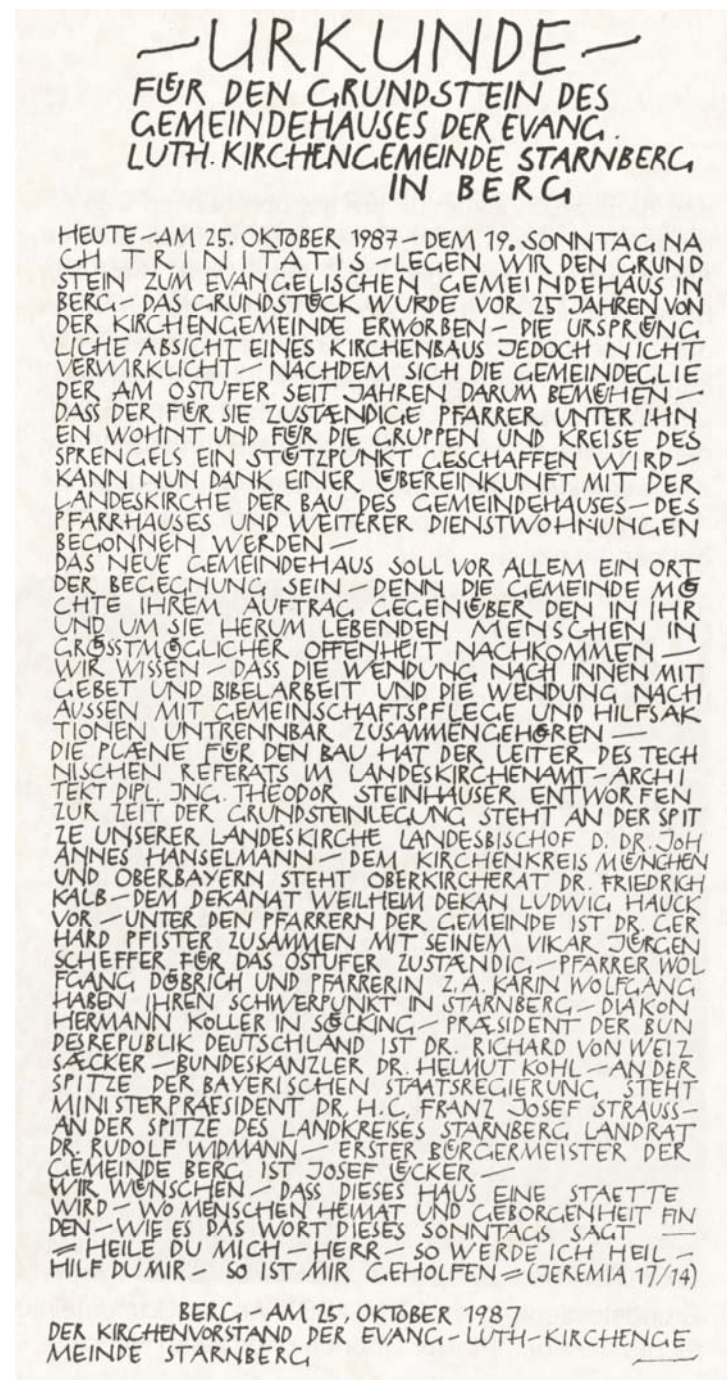 —URKUNDE—
FÜR DEN GRUNDSTEIN DES
GEMEINDEHAUSES DER EVANG.
LUTH. KIRCHENGEMEINDE STARNBERG
IN BERG
HEUTE–AM 25. OKTOBER 1987–DEM 19. SONNTAG NA
CH TRINITATIS–LEGEN WIR DEN GRUND
STEIN ZUM EVANGELISCHEN GEMEINDEHAUS IN
BERG–DAS GRUNDSTÜCK WURDE VOR 25 JAHREN VON
DER KIRCHENGEMEINDE ERWORBEN–DIE URSPRÜNG
LICHE ABSICHT EINES KIRCHENBAUS JEDOCH NICHT
VERWIRKLICHT–NACHDEM SICH DIE GEMEINDEGLIE
DER AM OSTUFER SEIT JAHREN DARUM BEMÜHEN–
DASS DER FÜR SIE ZUSTÆNDIGE PFARRER UNTER IHN
EN WOHNT UND FÜR DIE GRUPPEN UND KREISE DES
SPRENGELS EIN STÜTZPUNKT GESCHAFFEN WIRD–
KANN NUN DANK EINER ÜBEREINKUNFT MIT DER
LANDESKIRCHE DER BAU DES GEMEINDEHAUSES–DES
PFARRHAUSES UND WEITERER DIENSTWOHNUNGEN
BEGONNEN WERDEN–
DAS NEUE GEMEINDEHAUS SOLL VOR ALLEM EIN ORT
DER BEGEGNUNG SEIN–DENN DIE GEMEINDE MÖ
CHTE IHREM AUFTRAG GEGENÜBER DEN IN IHR
UND UM SIE HERUM LEBENDEN MENSCHEN IN
GRÖSSTMÖGLICHER OFFENHEIT NACHKOMMEN–
WIR WISSEN–DASS DIE WENDUNG NACH INNEN MIT
GEBET UND BIBELARBEIT UND DIE WENDUNG NACH
AUSSEN MIT GEMEINSCHAFTSPFLEGE UND HILFSAK
TIONEN UNTRENNBAR ZUSAMMENGEHÖREN–
DIE PLÆNE FÜR DEN BAU HAT DER LEITER DES TECH
NISCHEN REFERATS IM LANDESKIRCHENAMT–ARCHI
TEKT DIPL. JNG. THEODOR STEINHAUSER ENTWORFEN
ZUR ZEIT DER GRUNDSTEINLEGUNG STEHT AN DER SPIT
ZE UNSERER LANDESKIRCHE LANDESBISCHOF D. DR. JOH
ANNES HANSELMANN–DEM KIRCHENKREIS MÜNCHEN
UND OBERBAYERN STEHT OBERKIRCHERAT DR. FRIEDRICH
KALB–DEM DEKANAT WEILHEIM DEKAN LUDWIG HAUCK
VOR–UNTER DEN PFARRERN DER GEMEINDE IST DR. GER
HARD PFISTER ZUSAMMEN MIT SEINEM VIKAR JÜRGEN
SCHEFFER FÜR DAS OSTUFER ZUSTÆNDIG–PFARRER WOL
FGANG DÖBRICH UND PFARRERIN Z.A. KARIN WOLFGANG
HABEN IHREN SCHWERPUNKT IN STARNBERG–DIAKON
HERMANN KOLLER IN SÖCKING–PRÆSIDENT DER BUN
DESREPUBLIK DEUTSCHLAND IST DR. RICHARD VON WEIZ
SÆCKER–BUNDESKANZLER DR. HELMUT KOHL–AN DER
SPITZE DER BAYERISCHEN STAATSREGIERUNG STEHT
MINISTERPRAESIDENT DR. H.C. FRANZ JOSEF STRAUSS–
AN DER SPITZE DES LANDKREISES STARNBERG LANDRAT
DR. RUDOLF WIDMANN–ERSTER BÜRGERMEISTER DER
GEMEINDE BERG IST JOSEF ÜCKER–
WIR WÜNSCHEN–DASS DIESES HAUS EINE STAETTE
WIRD–WO MENSCHEN HEIMAT UND GEBORGENHEIT FIN
DEN–WIE ES DAS WORT DIESES SONNTAGS SAGT–
=HEILE DU MICH–HERR–SO WERDE ICH HEIL–
HILF DU MIR–SO IST MIR GEHOLFEN=(JEREMIA 17/14)
BERG–AM 25. OKTOBER 1987
DER KIRCHENVORSTAND DER EVANG–LUTH–KIRCHENGE
MEINDE STARNBERG —